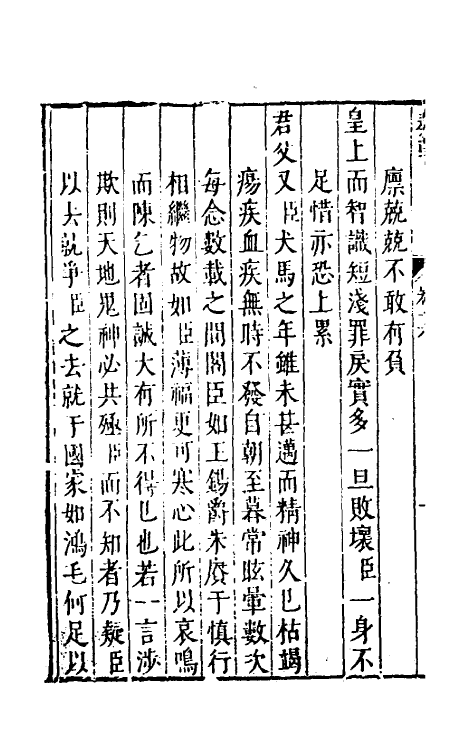 廪兢兢不敢有負
皇上而智識短淺罪戾實多一旦敗壞臣一身不
足惜亦恐上累
君父又臣犬馬之年雖未甚邁而精神久已枯竭
瘍疾血疾無時不發自朝至暮常眩暈數次
每念數載之間閣臣如王錫爵朱賡于慎行
相繼物故如臣薄福更可寒心此所以哀鳴
而陳乞者固誠大有所不得已也若一言涉
欺則天地鬼神必共殛臣而不知者乃疑臣
以去就爭臣之去就于國家如鴻毛何足以